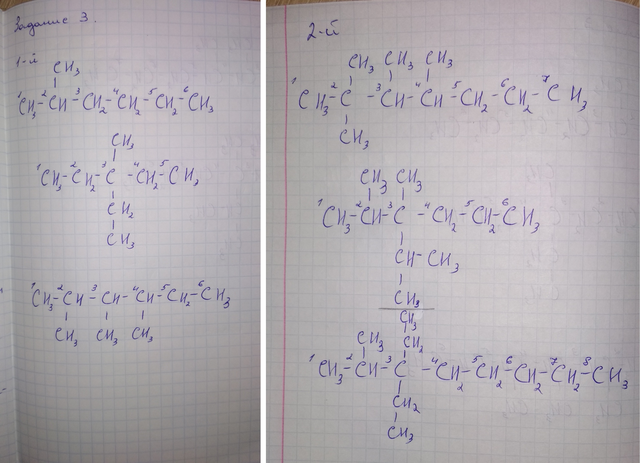 Задание 3.
1-й
CH₃
¹CH₃-²CH-³CH₂-⁴CH₂-⁵CH₂-⁶CH₃
CH₃
¹CH₃-²CH₂-³C-⁴CH₂-⁵CH₃
CH₂
CH₃
¹CH₃-²CH-³CH-⁴CH-⁵CH₂-⁶CH₃
CH₃ CH₃ CH₃
2-й
CH₃ CH₃ CH₃
¹CH₃-²C-³CH-⁴CH-⁵CH₂-⁶CH₂-⁷CH₃
CH₃
CH₃ CH₃
¹CH₃-²CH-³C-⁴CH₂-⁵CH₂-⁶CH₃
CH-CH₃
CH₃
CH₃
CH₃ CH₂
¹CH₃-²CH-³C-⁴CH₂-⁵CH₂-⁶CH₂-⁷CH₂-⁸CH₃
CH₂
CH₃